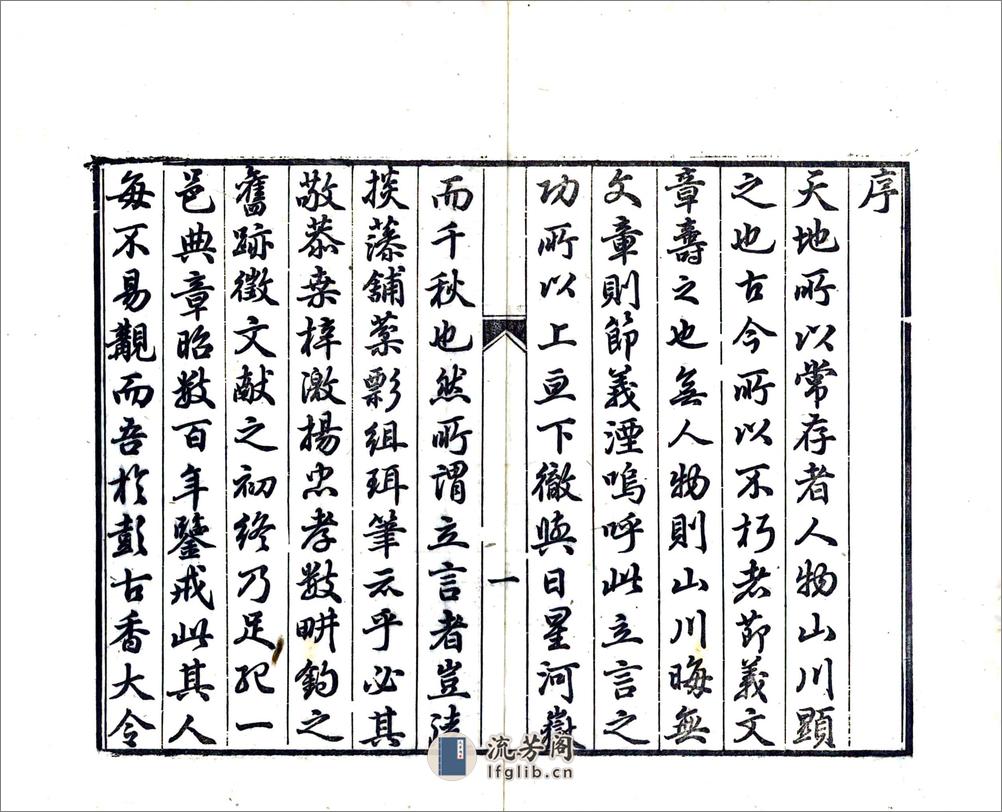 序
天地所以常存者人物山川顯
之也古今所以不朽者節義文
章壽之也無人物則山川晦無
文章則節義湮嗚呼此立言之
功所以上亘下徹與日星河嶽
一
而千秋也然所謂立言者豈
掞藻舖棻彩組珥筆云乎必其
敬恭桑梓激揚忠孝數畊釣之
舊跡徵文献之初終乃足紀一
邑典章昭数百年鑒戒此其人
每不易觀而吾於彭古香大令
流芳阁
lfglib.cn